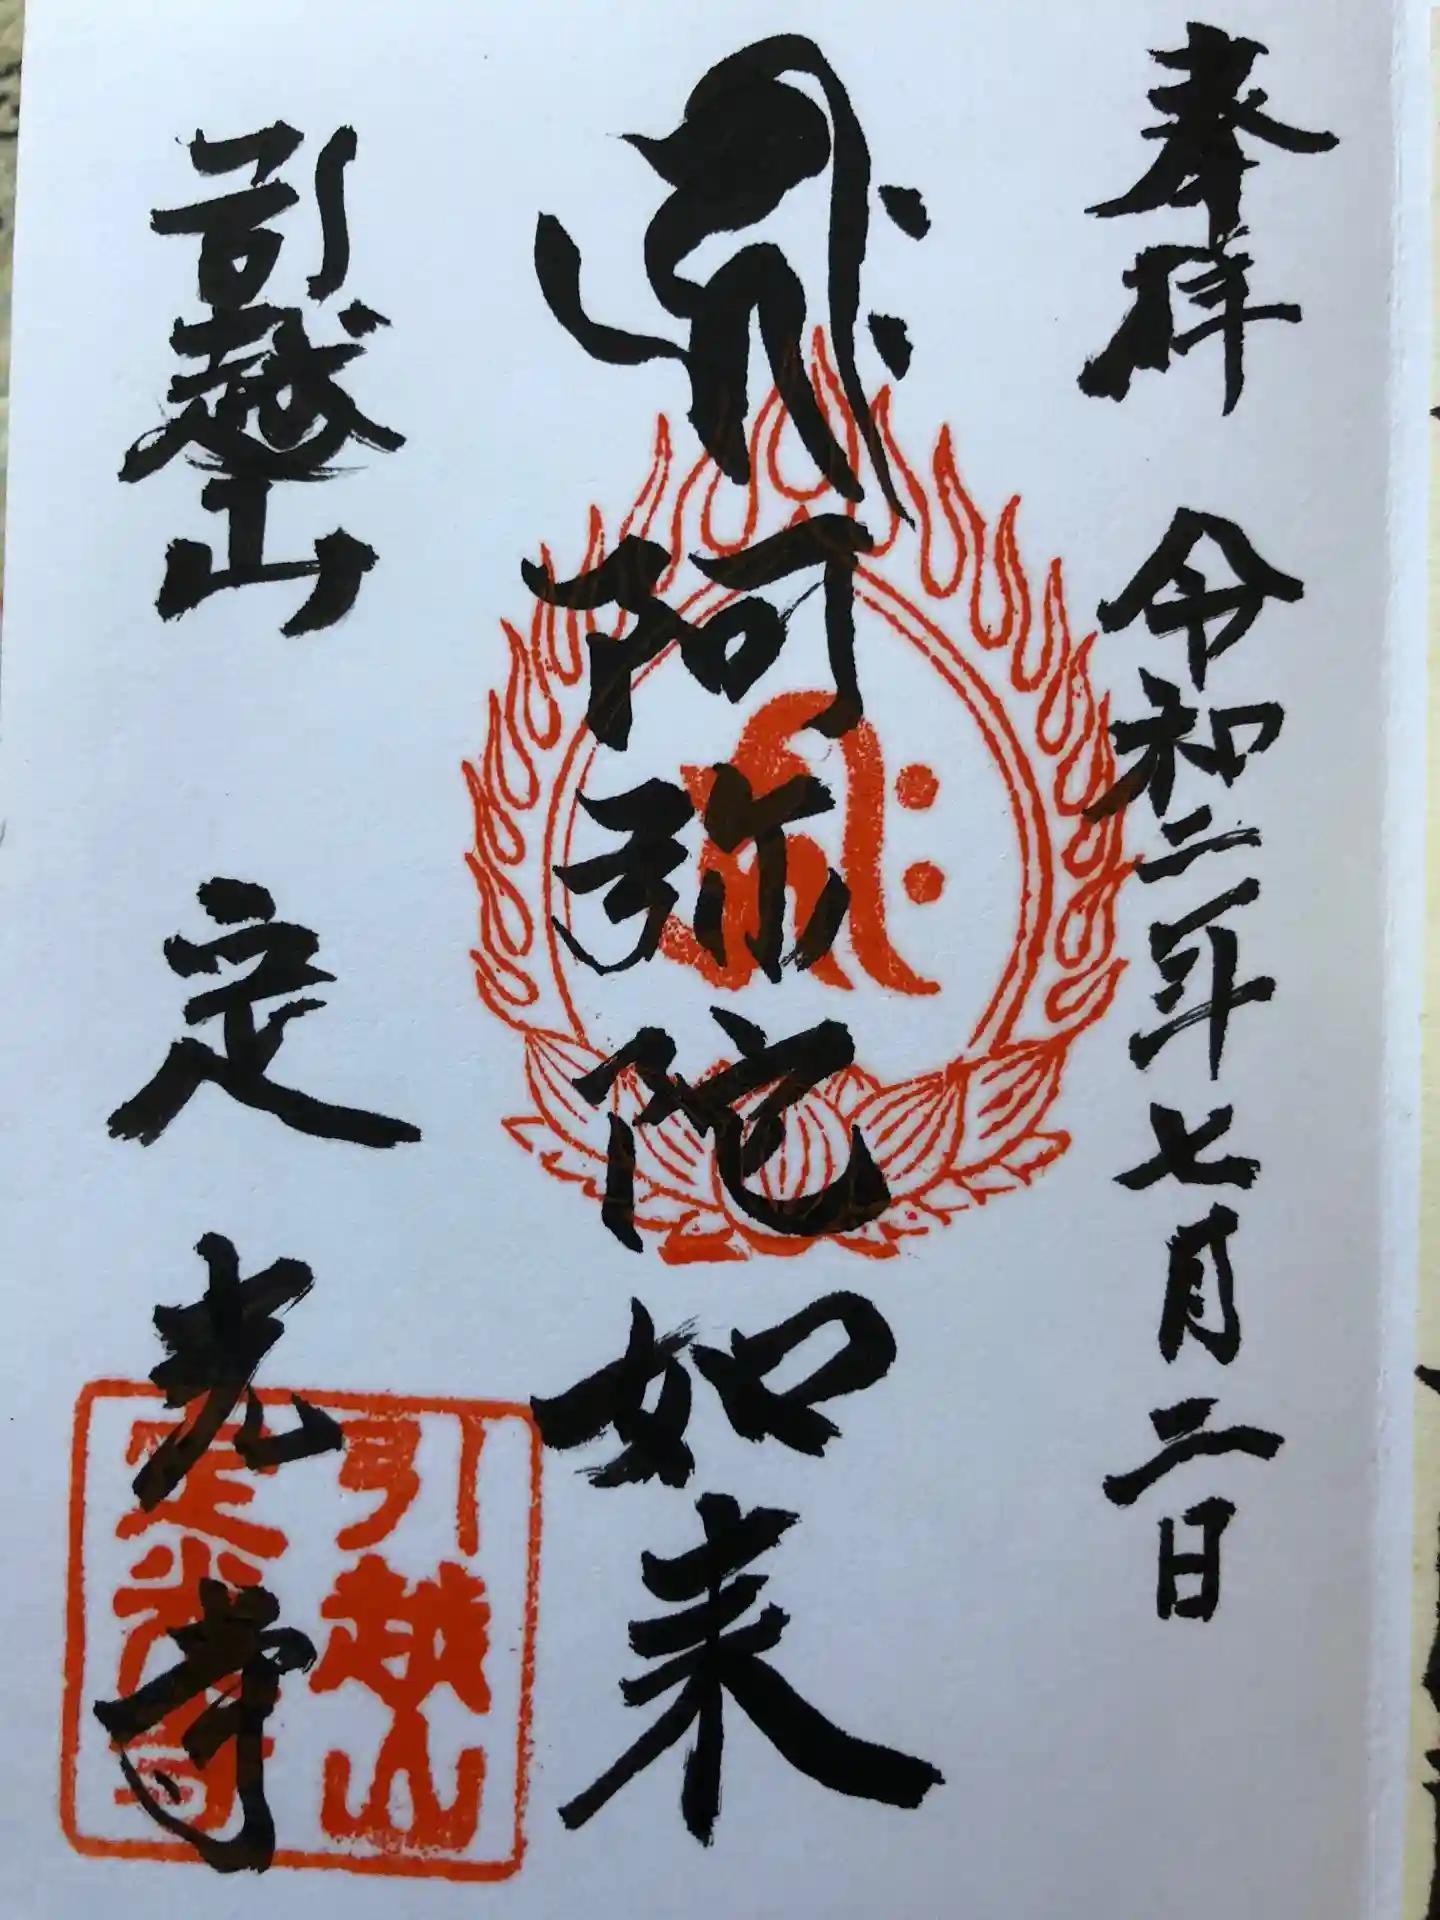 奉拝　令和二年七月二日
キリーク 阿弥陀如来
引越山　定光寺
引越山
定光寺